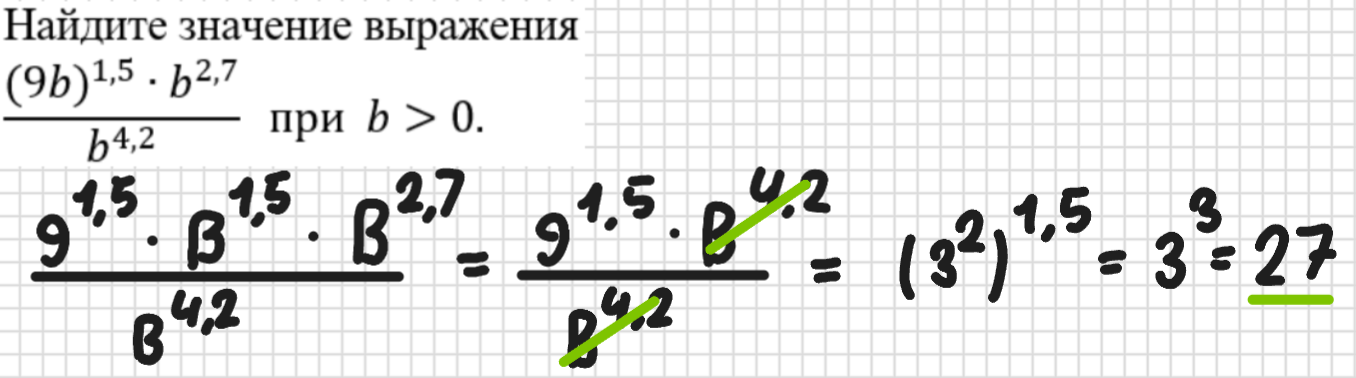 Найдите значение выражения
(9b)^{1,5} · b^{2,7}
b^{4,2}
при b > 0.
9^{1,5} · B^{1,5} · B^{2,7} = 9^{1,5} · B^{4,2} = (3^2)^{1,5} = 3^3 = 27
B^{4,2} B^{4,2}